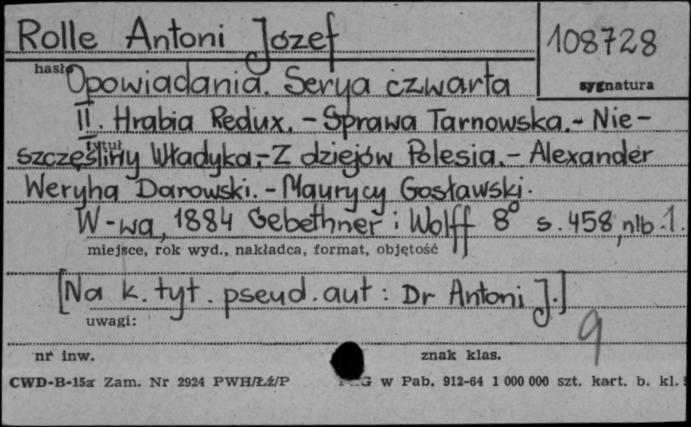 Rolle Antoni Józef
108728
hasło
sygnatura
Opowiadania. Serya czwarta
II. Hrabia Redux. - Sprawa Tarnowska. - Nie-
tytuł
szczęśliwy Władyka. - Z dziejów Polesia. - Alexander
Weryha Darowski. - Maurycy Gosławski.
W-wa, 1884 Gebethner i Wolff 8° s. 458, nlb. 1.
miejsce, rok wyd., nakładca, format, objętość
[Na k. tyt. pseud. aut: Dr Antoni J.]
uwagi:
9
nr inw.
znak klas.
CWD-B-15a Zam. Nr 2924 PWH/Łż/P
w Pab. 912-64 1 000 000 szt. kart. b. kl.